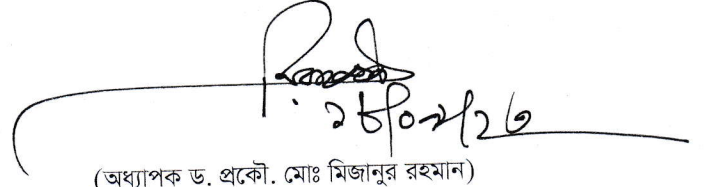 ২৮/০৯/২৩
(অধ্যাপক ড. প্রকৌ. মোঃ মিজানুর রহমান)